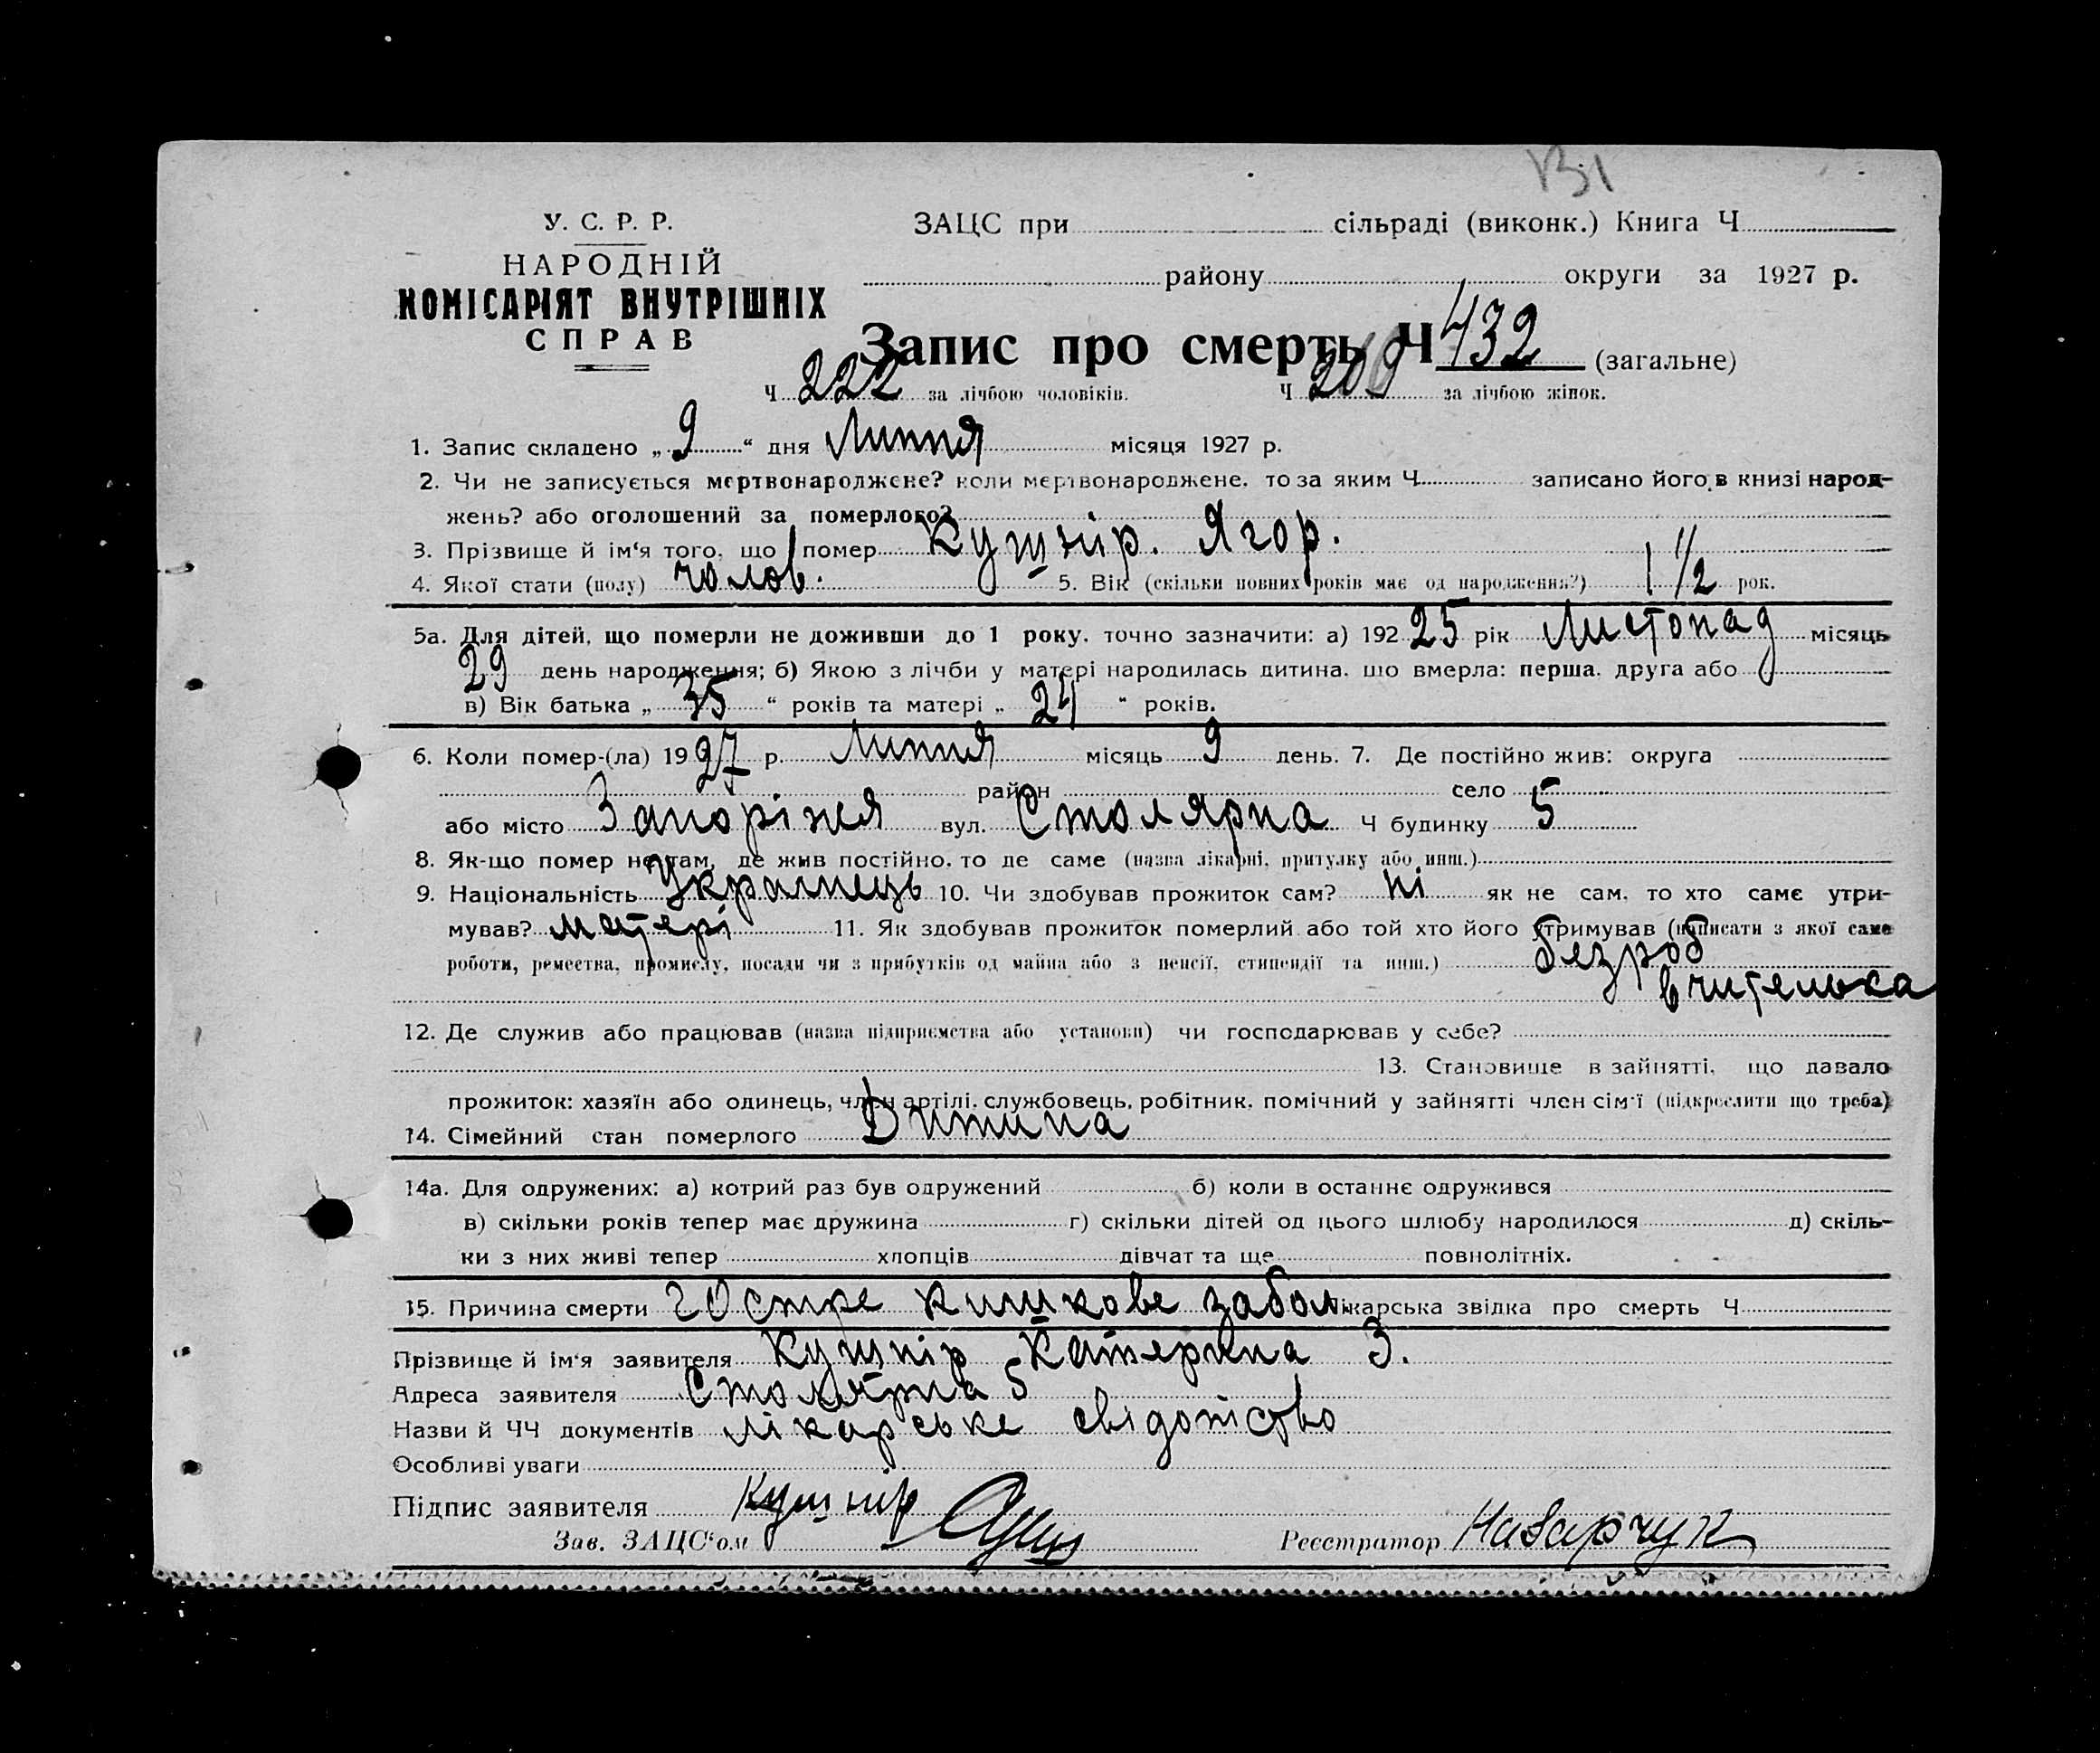 У. С. Р. Р.
НАРОДНІЙ
КОМІСАРІЯТ ВНУТРІШНІХ
СПРАВ
ЗАЦС при сільраді (виконк.) Книга Ч
району округи за 1927 р.
Запис про смерть Ч 432 (загальне)
Ч 222 за лічбою чоловіків. Ч за лічбою жінок.
1. Запис складено „ 9 “ дня Липня місяця 1927 р.
2. Чи не записується мертвонароджене? коли мертвонароджене, то за яким Ч. записано його в книзі народ-
жень? або оголошений за померлого?
3. Прізвище й ім‘я того, що помер Кушнір. Ягор.
4. Якої стати (полу) чолов. 5. Вік (скільки повних років має од народження?) 1 1/2 рок.
5а. Для дітей, що померли не доживши до 1 року, точно зазначити: а) 1925 рік Листопад місяць
29 день народження; б) Якою з лічби у матері народилась дитина, що вмерла: перша, друга або
в) Вік батька „ 35 “ років та матері „ 24 “ років.
6. Коли помер-(ла) 1927 р. Липня місяць 9 день. 7. Де постійно жив: округа
район село
або місто Запоріжя вул. Столярна Ч будинку 5
8. Як-що помер не там, де жив постійно, то де саме (назва лікарні, притулку або инш.)
9. Національність Українець 10. Чи здобував прожиток сам? ні як не сам, то хто саме утри-
мував? матері 11. Як здобував прожиток померлий або той хто його утримував (написати з якої саме
роботи, ремества, промислу, посади чи з прибутків од майна або з пенсії, стипендії та инш.) безроб
вчителька
12. Де служив або працював (назва підприємства або установи) чи господарював у себе?
13. Становище в зайнятті, що давало
прожиток: хазяїн або одинець, член артілі, службовець, робітник, помічний у зайнятті член сім‘ї (підкреслити що треба)
14. Сімейний стан померлого Дитина
14а. Для одружених: а) котрий раз був одружений б) коли в останнє одружився
в) скільки років тепер має дружина г) скільки дітей од цього шлюбу народилося д) скіль-
ки з них живі тепер хлопців дівчат та ще повнолітніх.
15. Причина смерти гостре кишкове забол. Лікарська звідка про смерть Ч
Прізвище й ім‘я заявителя Кушнір Катерина З.
Адреса заявителя Столярна 5
Назви й ЧЧ документів лікарське свідотство
Особливі уваги
Підпис заявителя Кушнір
Зав. ЗАЦС‘ом Реєстратор Назарчук